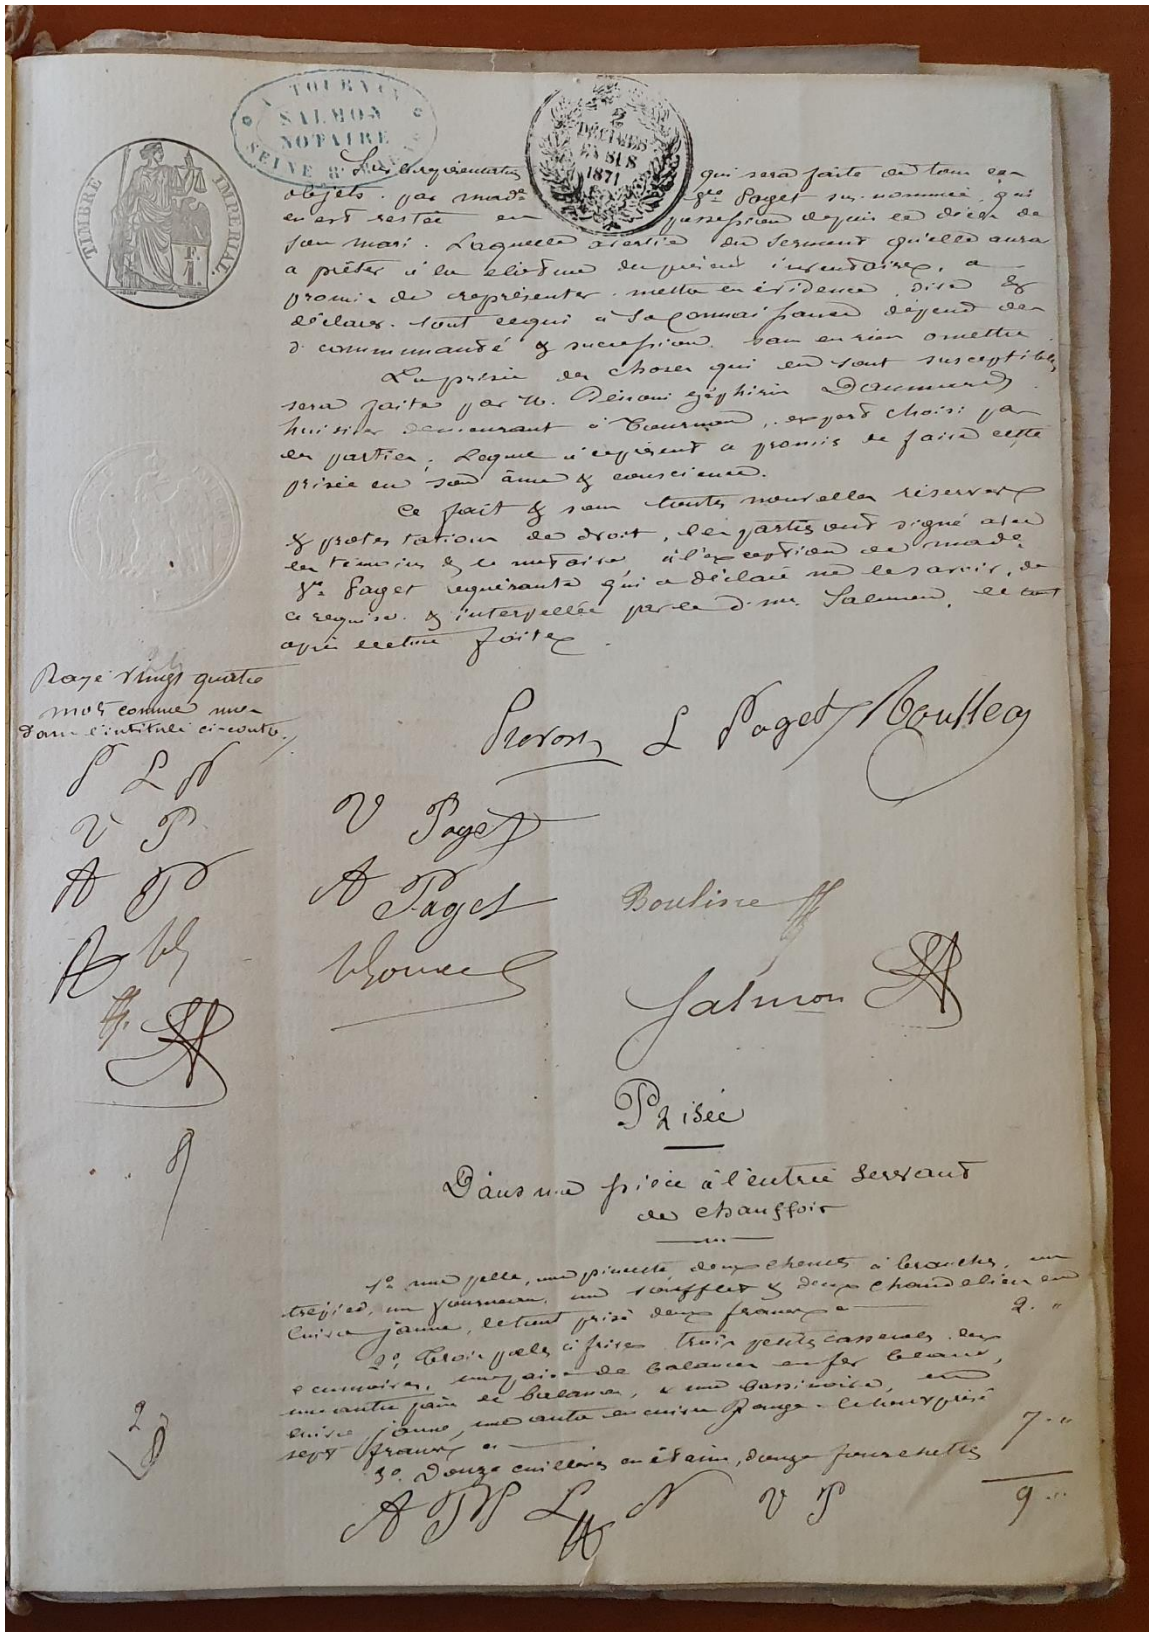 A TOURNAN
SALMON
NOTAIRE
SEINE &
2
DÉCIMES
EN SUS
1871
TIMBRE IMPERIAL
1 F.
La représentation qui sera faite de tous ces
objets par mad.e V.ve Paget sus-nommée, qui
en est restée en possession depuis le décès de
son mari. Laquelle avertie du serment qu'elle aura
à prêter à la clôture du présent inventaire, a
promis de représenter mettre en évidence, dire &
déclarer tout ce qui à sa connaissance dépend des
d. communauté & succession sans en rien omettre
La prisée des choses qui en sont susceptibles
sera faite par M. Zéphirin
huissier demeurant à Tournan, expert choisi par
les parties, Lequel à ce présent a promis de faire cette
prisée en son âme & conscience.
Ce fait & sous toutes nouvelles réserves
& protestations de droit, les parties ont signé avec
les témoins & le notaire à l'exception de mad.e
V.e Paget requérante qui a déclaré ne le savoir, de
ce requise & interpellée par le d. me Salmon, le tout
après lecture faite
Rayé vingt quatre
mots comme nuls
dans l'intitulé ci-contre
L Paget
P L P
V P
V Paget
A P
A Paget
Salmon
Prisée
Dans une pièce à l'entrée servant
de chauffoir
1° une pelle, une pincette deux chenets à branches, un
trépied, un fourneau, un soufflet & deux chandeliers en
cuivre jaune, le tout prisé deux francs 2. "
2° trois poëles à frire trois petites casseroles, deux
écumoires, une paire de balances en fer blanc,
une autre paire de balances, & une bassinoire, en
cuivre jaune, une autre en cuivre rouge le tout prisé
sept francs 7. "
3° Douze cuillères en étain, douze fourchettes
2
9 "
V P